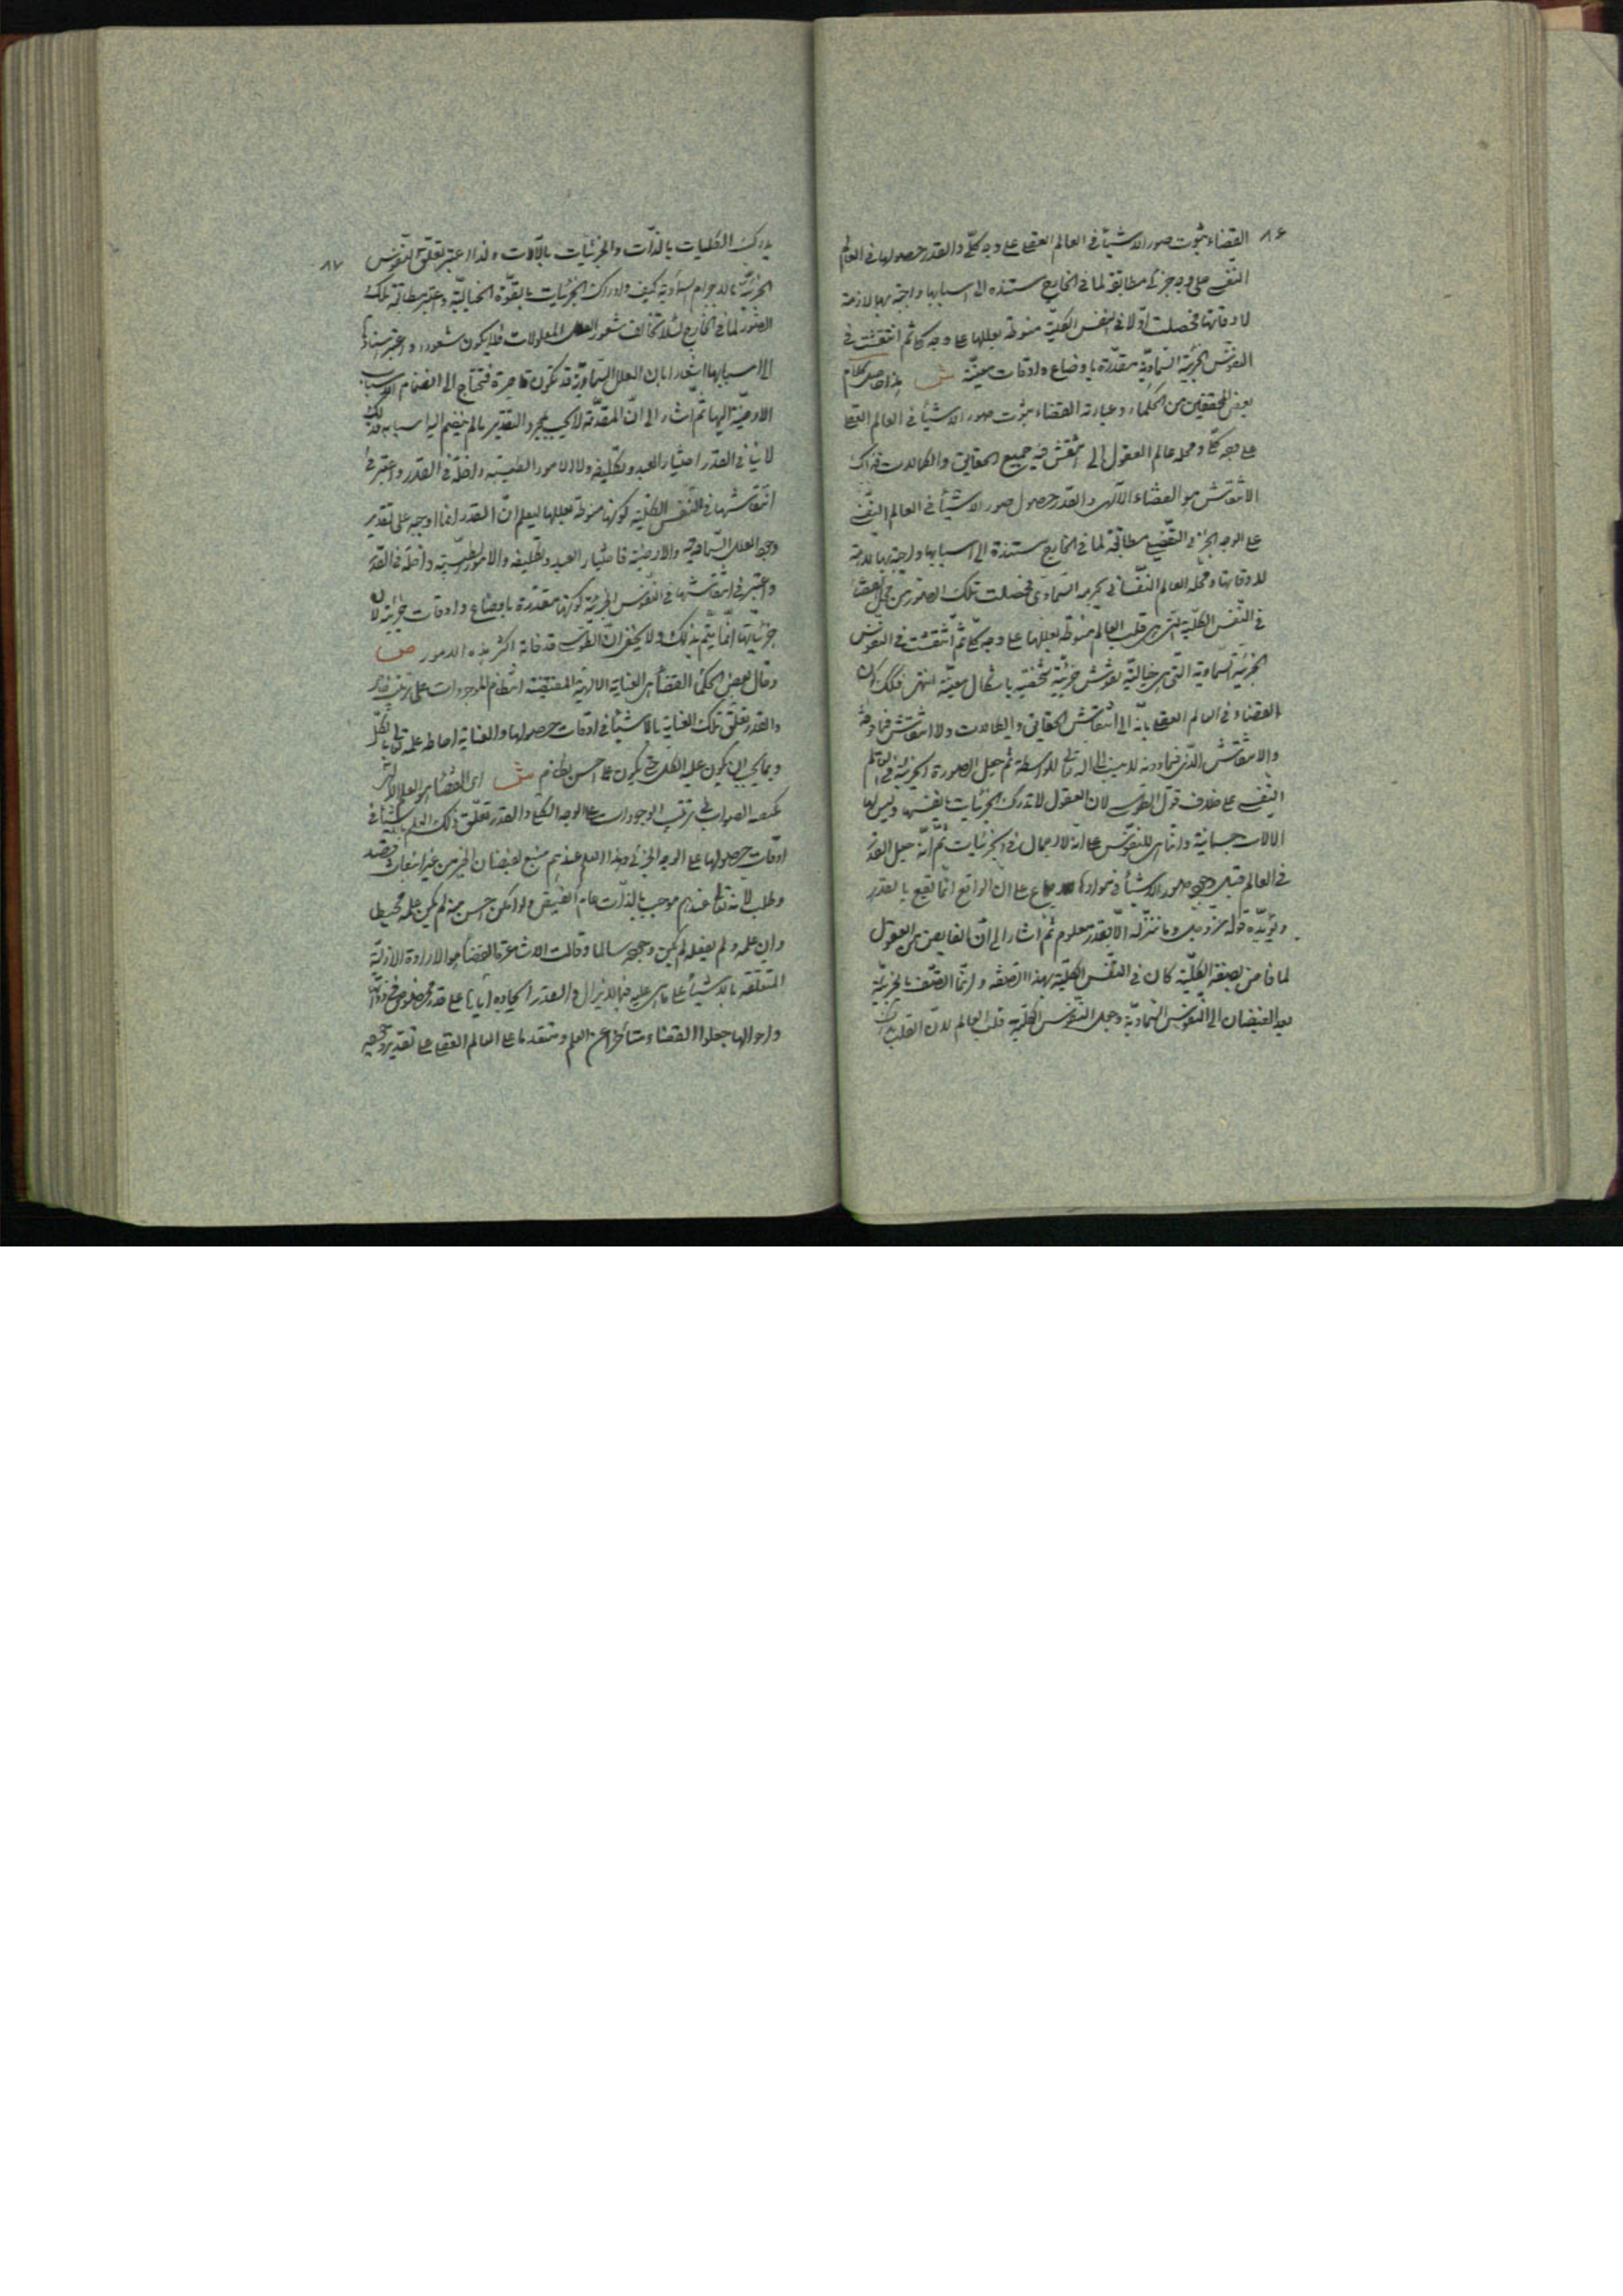 ٨٦
القضاء ثبوت صور الاشياء فى العالم العقلى على وجه كلّى والقدر حصولها فى العالم
النفسى على وجه جزئى مطابقة لما فى الخارج مستنده الى اسبابها واجبة بها لازمة
لاوقاتها فحصلت اوّلا فى النفس الكلية منوطة بعللها على وجه كلى ثم انتقشت فى
النفوس الجزئية السماوية مقدّرة باوضاع واوقات معيّنة ش هذا حاصل كلام
بعض المحققين من الحكماء وعبارته القضاء ثبوت صور الاشياء فى العالم العقلى
على وجه كلى ومحله عالم العقول الى ينتقش فيه جميع الحقايق والكمالات فذلك
الانتقاش هو القضاء الالهى والقدر حصول صور الاشياء فى العالم النفسى
على الوجه الجزئى مطابقة لما فى الخارج مستندة الى اسبابها واجبة بها لازمة
لاوقاتها ومحله العالم النفسانى بجرمه السماوى فحصلت تلك الصور من
فى النفس الكلية التى هى قلب العالم منوطة بعللها على وجه كلى ثم انتقشت فى النفوس
الجزئية السماوية التى هى خيالية نقوش جزئية مشخصة باشكال معيّنة انتهى
القضاء فى العالم العقلى بانه الى انتقاش الحقايق والكمالات ولا انتقاش فيما دونه
والانتقاش الذى فيما دونه لا ينسب الى الله تعالى للواسطة ثم جعل الصورة الجزئية فى العالم
النفسى على خلاف قول الطوسى لان العقول لا تدرك الجزئيات بانفسها وليس لها
الالات جسمانية وانما هى للنفوس على انه لا اجمال فى الجزئيات ثم انّه جعل القدر
فى العالم قبل وجود صور الاشياء فى موادها على ان الواقع انما يقع بالقدر
ويؤيّده قوله عز وجل وما ننزله الّا بقدر معلوم ثم اشار الى ان الفايض من العقول
لما فاض بصفة الكليّة كان فى النفس الكلية بهذا الصفة وانما اتصف بالجزئية
بعد الفيضان الى النفوس السماوية وجعل النفوس الكلية قلب العالم لان القلب
٨٧
يدرك الكليات بالذات والجزئيات بالالات ولذا اعتبر تعلق النفوس
الجزئية بالاجرام السماوية كيف وادراك الجزئيات بالقوة الخيالية واعتبر مطابقة تلك
الصور لما فى الخارج لئلا تخالف شعور المعلولات فلا يكون شعورا واعتبر استنادها
الى اسبابها اشعارا بان العلل السماوية قد تكون قاصرة فتحتاج الى انضمام الاسباب
الارضية اليها ثم اشار الى ان المقدّمة لا يجب بمجرد التقدير ما لم ينضم اليها اسبابه
لا ينافى القدر اختيار العبد وتكليفه ولا الامور الطبيّة داخلة فى القدر واعتبر فى
انتقاشها فى النفس الكلية كونها منوطة بعللها ليعلم ان القدر انما اوجبه على تقدير
وجود العلل السماوية والارضية فاختيار العبد وتكليفه والامور الطبيّة داخلة فى القدر
واعتبر فى انتقاشها فى النفوس الجزئية كونها مقدرة باوضاع واوقات جزئية لان
جزئياتها انما يتم بذلك ولا يخفى ان الطوسى قد فاته اكثر هذه الامور ص
وقال بعض الحكماء القضاء هى العناية الالهية المقتضية انتظام الموجودات على ترتيب خاص
والقدر تعلّق تلك العناية بالاشياء فى اوقات حصولها والعناية احاطة علمه تعالى بالكل
وبما يجب ان يكون عليه الكل حتى يكون على احسن نظام ش اى القضاء هو العلم الالهى
بكيفية الصواب فى ترتيب الوجودات على الوجه الكلى والقدر تعلّق ذلك العلم بالاشياء فى
اوقات حصولها على الوجه الجزئى وهذا العلم عندهم منبع لفيضان الخير من غير انبعاث قصد
وطلب لانه تعالى عندهم موجب بالذات عام الفيض ولو امكن احسن منه لم يكن علمه محيطا
وان علمه ولم يفعله لم يكن وجوده سالما وقالت الاشاعرة القضاء هو الارادة الازلية
المتعلقه بالاشياء على ما هى عليه فيما لا يزال والقدر ايجاده اياها على قدر مخصوص فى ذواتها
واحوالها جعلوا القضاء متأخرا عن العلم ومتقدما على العالم العقلى على تقدير